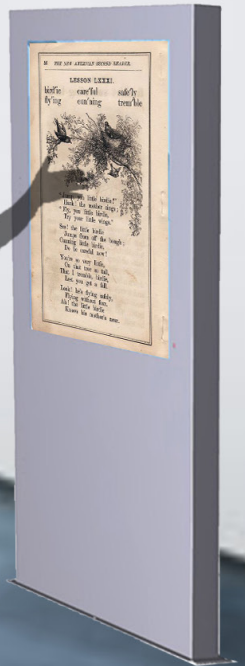 THE NEW AMERICAN SECOND READER.
LESSON LXXXI.
bird'ie care'ful safe'ly
fly'ing cun'ning trem'ble
you little birdie!"
the mother sings;
"Fly, you little birdie,
Try your little wings."
See! the little birdie
Jumps from off the bough;
Cunning little birdie,
Do be careful now!
You're so very little,
On that tree so tall,
That I tremble, birdie,
Lest you get a fall.
Look! he's flying safely,
Flying without fear,
Ah! the little birdie
Knows his mother's near.